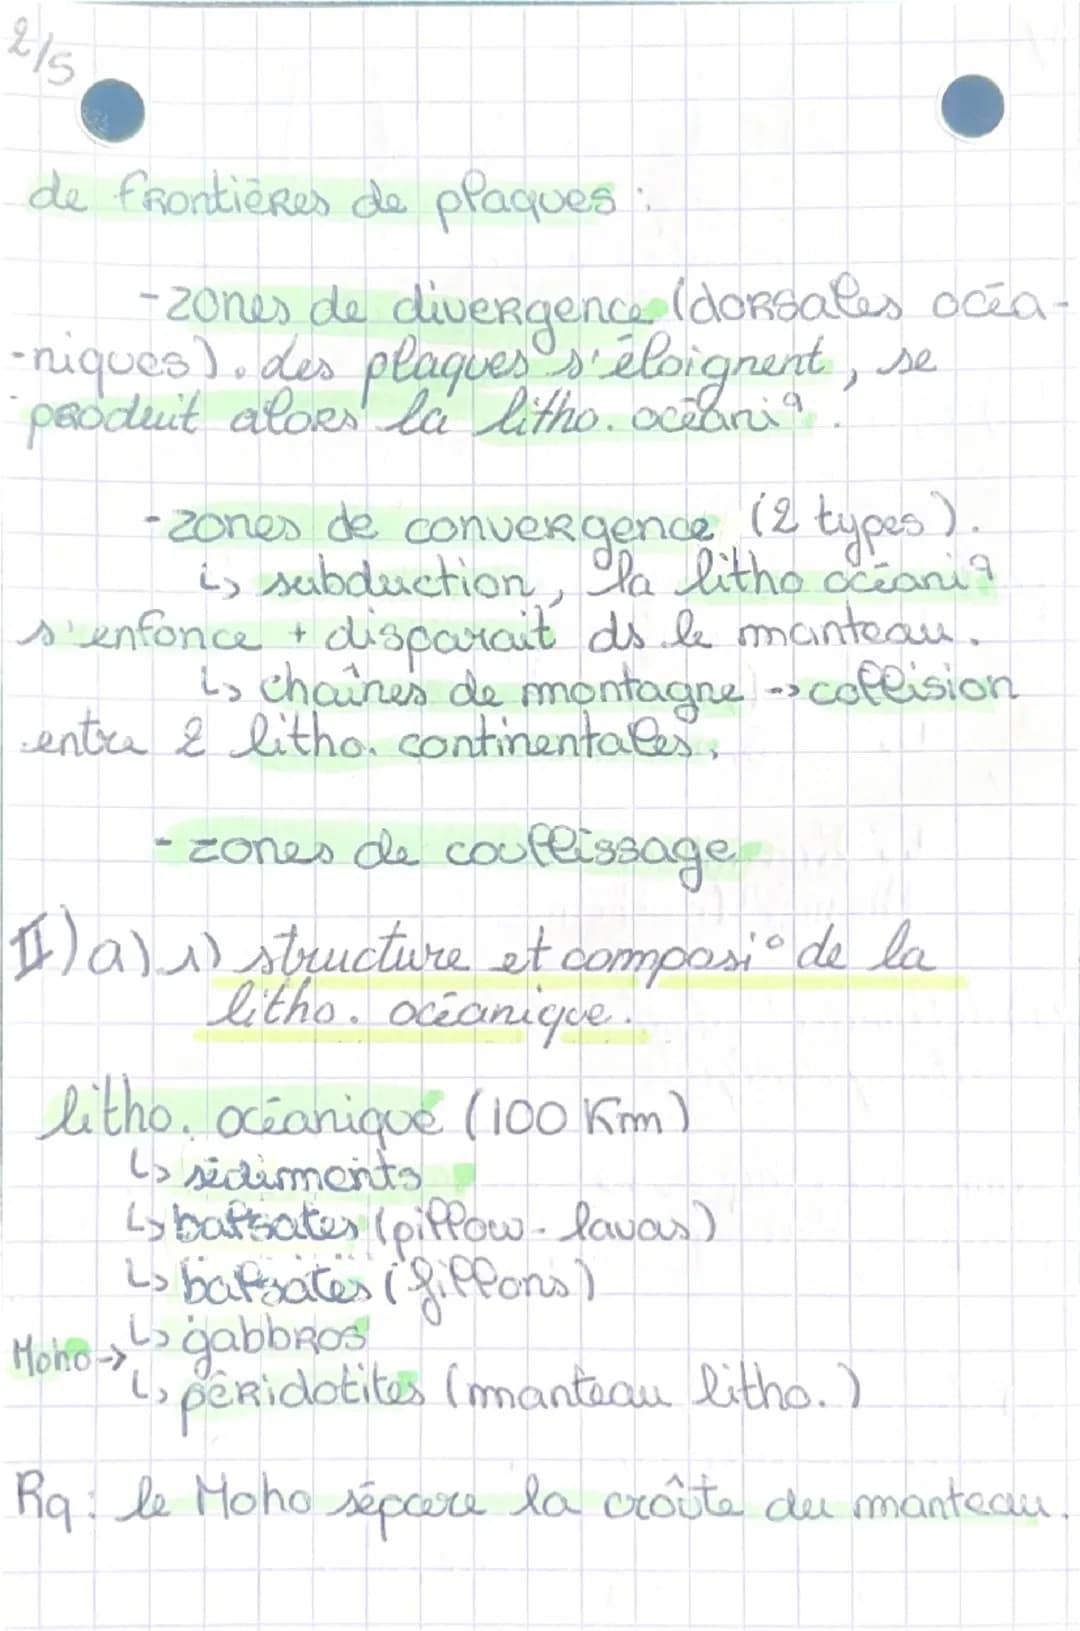 2/5
de frontières de plaques :
- zones de divergence (dorsales océa-
-niques). des plaques s'éloignent, se
produit alors la litho. océaniq.
- zones de convergence (2 types).
↳ subduction, la litho océaniq
s'enfonce + disparait ds le manteau.
↳ chaînes de montagne -> collision
entre 2 litho. continentales,
- zones de coulissage
II) a) 1) structure et composi° de la
litho. océanique.
litho. océanique (100 Km)
↳ sédiments
↳ balsates (pillow-lavas)
↳ balsates (fillons)
↳ gabbros
Moho ->
↳ péridotites (manteau litho.)
Rq : le Moho sépare la croûte du manteau.